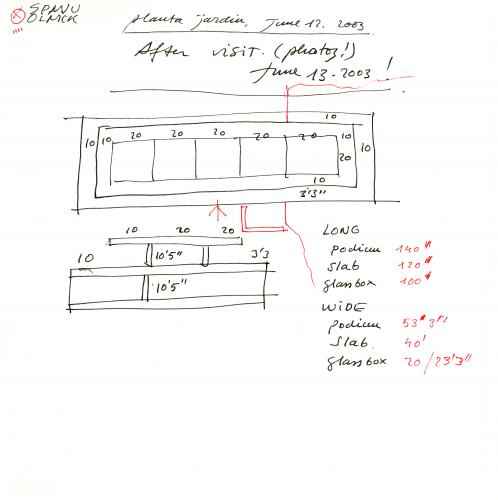 SPANU
OLNICK
planta jardin. June 12. 2003
After visit. (photos!)
June 13. 2003 !
10
10 10 20 20 20 20 20 10 10
20
10
3'3"
10 20 20
10 10'5" 3'3
10'5"
LONG
podium 140"
slab 120"
glassbox 100"
WIDE
podium 53" 3"
slab. 40'
glassbox 20/23'3"